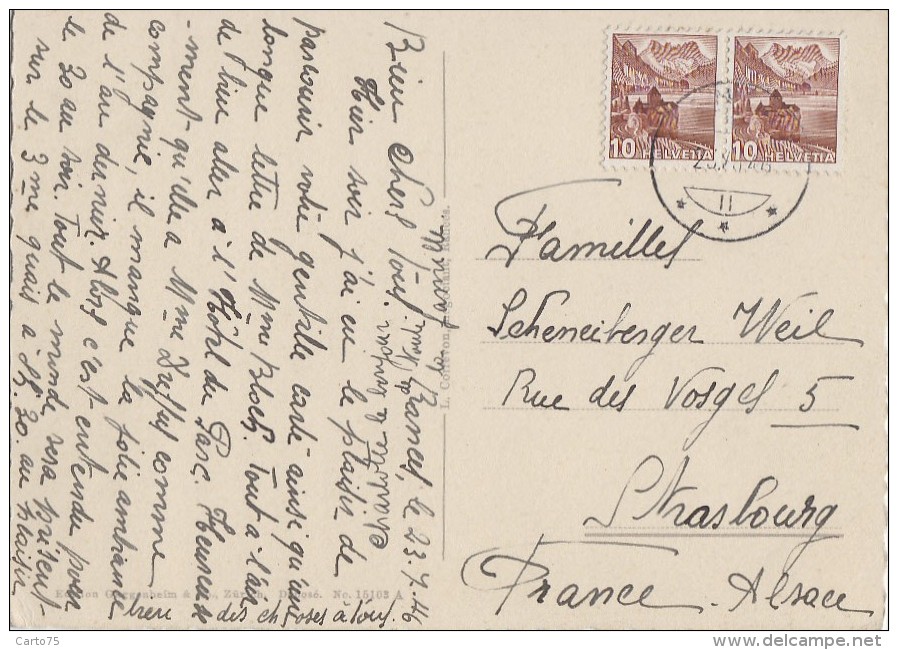 Baнes, le 23.7.46
Bien Chers Tous.
Hier soir j'ai eu le plaisir de
parcourir votre gentille carte ainsi qu'une
longue lettre de Mme Bloch. Tout à l'heure
de bien aler à l'Hôtel du Parc. Heureuse-
-ment qu'elle a Mme Dreyfus comme
compagnie, il manque la jolie ambiance
de l'an dernier. Alors c'est entendu pour
le 30 au soir. Tout le monde sera présent
sur le 3me quais à 21.30. au plaisir
bien des choses à tous.
la famille
Familles
Scheneiberger Weil
Rue des Vosges 5
Strasbourg
France. Alsace
10 HELVETIA
10 HELVETIA
II
Edition Guggenheim & Co., Zürich. Déposé. No. 15103 A
Carto75
www.delcampe.net